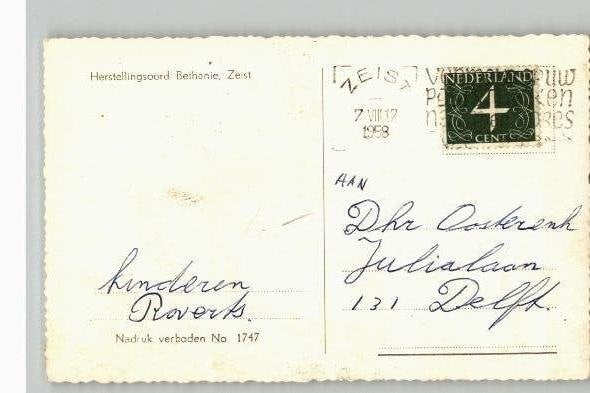 Herstellingsoord Bethanie, Zeist
ZEIST
7 VIII 17
1958
NEDERLAND
4
CENT
AAN
Dhr Oosterenk
Julialaan
131 Delft.
kinderen
Roverts.
Nadruk verboden No 1747